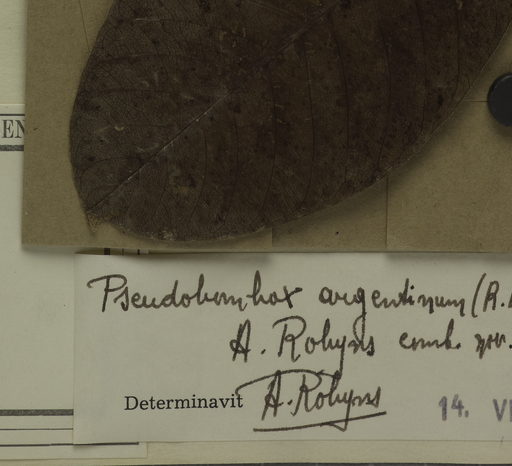 EN
Pseudobombax argentinum (R.
A. Robyns comb. nov.
Determinavit A. Robyns
14. VI